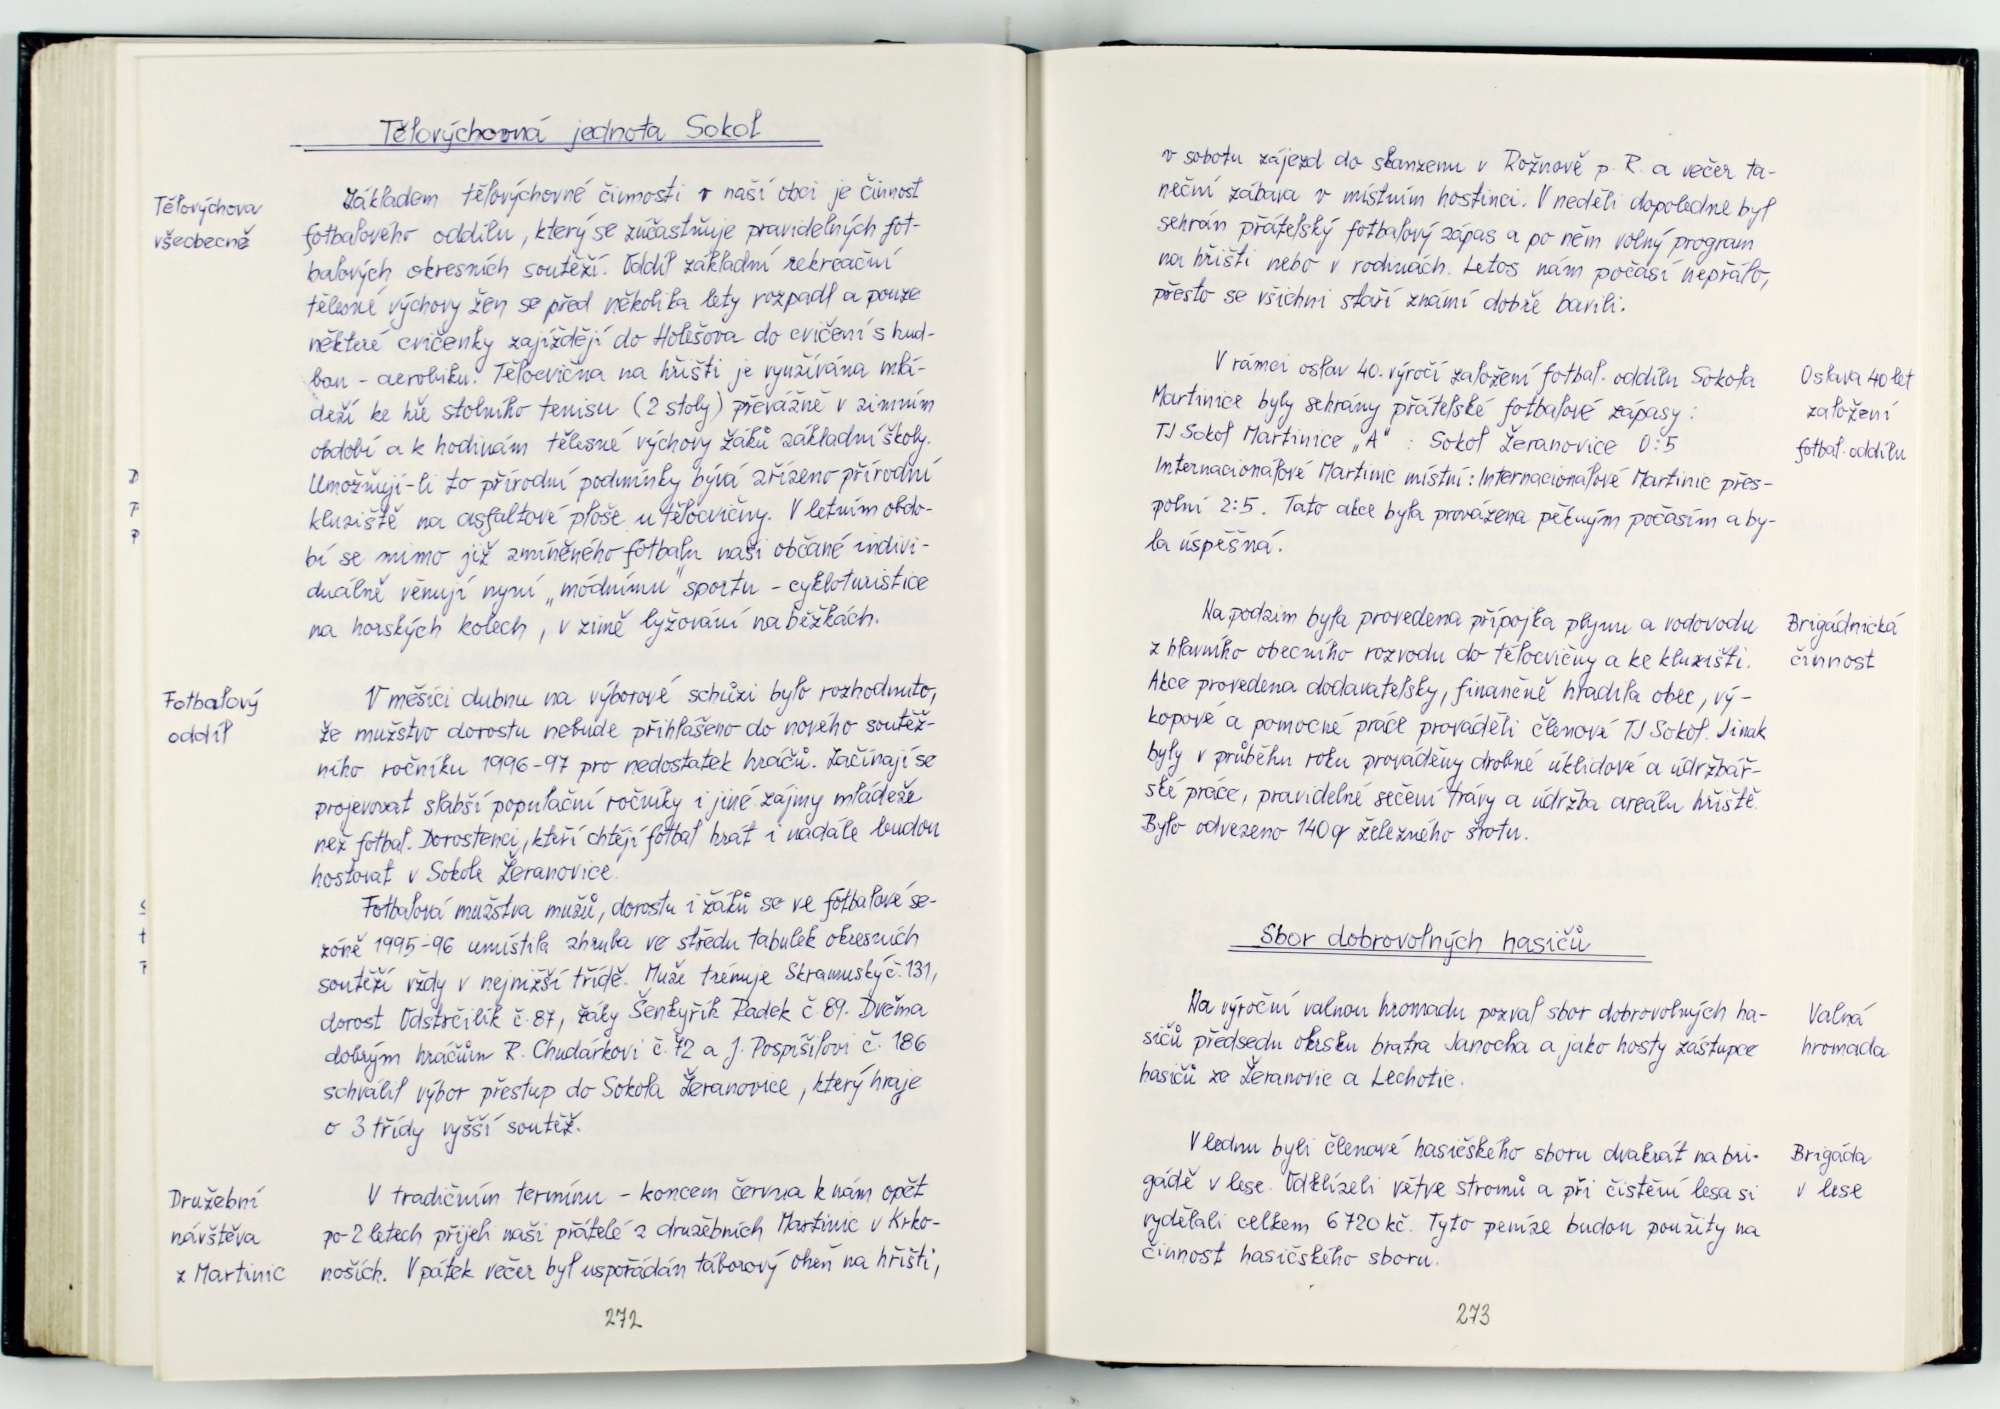 Tělovýchovná jednota Sokol
Tělovýchova
všeobecně
Základem tělovýchovné činnosti v naší obci je činnost
fotbalového oddílu, který se zúčastňuje pravidelných fot-
balových okresních soutěží. Oddíl základní rekreační
tělesné výchovy žen se před několika lety rozpadl a pouze
některé cvičenky zajíždějí do Holešova do cvičení s hud-
bou - aerobiku. Tělocvična na hřišti je využívána mlá-
deží ke hře stolního tenisu (2 stoly) převážně v zimním
období a k hodinám tělesné výchovy žáků základní školy.
Umožňují-li to přírodní podmínky bývá zřízeno přírodní
kluziště na asfaltové ploše u tělocvičny. V letním obdo-
bí se mimo již zmíněného fotbalu naši občané indivi-
duálně věnují nyní „módnímu" sportu - cykloturistice
na horských kolech, v zimě lyžování na běžkách.
Fotbalový
oddíl
V měsíci dubnu na výborové schůzi bylo rozhodnuto,
že mužstvo dorostu nebude přihlášeno do nového soutěž-
ního ročníku 1996-97 pro nedostatek hráčů. Začínají se
projevovat slabší populační ročníky i jiné zájmy mládeže
než fotbal. Dorostenci, kteří chtějí fotbal hrát i nadále budou
hostovat v Sokole Žeranovice.
Fotbalová mužstva mužů, dorostu i žáků se ve fotbalové se-
zóně 1995-96 umístila zhruba ve středu tabulek okresních
soutěží vždy v nejnižší třídě. Muže trénuje Skramuský č. 131,
dorost Odstrčilík č. 87, žáky Šenkyřík Radek č. 89. Dvěma
dobrým hráčům R. Chudárkovi č. 72 a J. Pospíšilovi č. 186
schválil výbor přestup do Sokola Žeranovice, který hraje
o 3 třídy vyšší soutěž.
Družební
návštěva
z Martinic
V tradičním termínu - koncem června k nám opět
po 2 letech přijeli naši přátelé z družebních Martinic v Krko-
noších. V pátek večer byl uspořádán táborový oheň na hřišti,
272
v sobotu zájezd do skanzenu v Rožnově p. R. a večer ta-
neční zábava v místním hostinci. V neděli dopoledne byl
sehrán přátelský fotbalový zápas a po něm volný program
na hřišti nebo v rodinách. Letos nám počasí nepřálo,
přesto se všichni staří známí dobře bavili.
V rámci oslav 40. výročí založení fotbal. oddílu Sokola
Martinice byly sehrány přátelské fotbalové zápasy:
TJ Sokol Martinice „A" : Sokol Žeranovice 0:5
Internacionálové Martinic místní : Internacionálové Martinic přes-
polní 2:5. Tato akce byla provázena pěkným počasím a by-
la úspěšná.
Oslava 40 let
založení
fotbal. oddílu
Na podzim byla provedena přípojka plynu a vodovodu
z hlavního obecního rozvodu do tělocvičny a ke kluzišti.
Akce provedena dodavatelsky, finančně hradila obec, vý-
kopové a pomocné práce prováděli členové TJ Sokol. Jinak
byly v průběhu roku prováděny drobné úklidové a údržbář-
ské práce, pravidelné sečení trávy a údržba areálu hřiště.
Bylo odvezeno 140 q železného šrotu.
Brigádnická
činnost
Sbor dobrovolných hasičů
Na výroční valnou hromadu pozval sbor dobrovolných ha-
sičů předsedu okrsku bratra Janocha a jako hosty zástupce
hasičů ze Žeranovic a Lechotic.
Valná
hromada
V lednu byli členové hasičského sboru dvakrát na bri-
gádě v lese. Odklízeli větve stromů a při čistění lesa si
vydělali celkem 6720 kč. Tyto peníze budou použity na
činnost hasičského sboru.
Brigáda
v lese
273